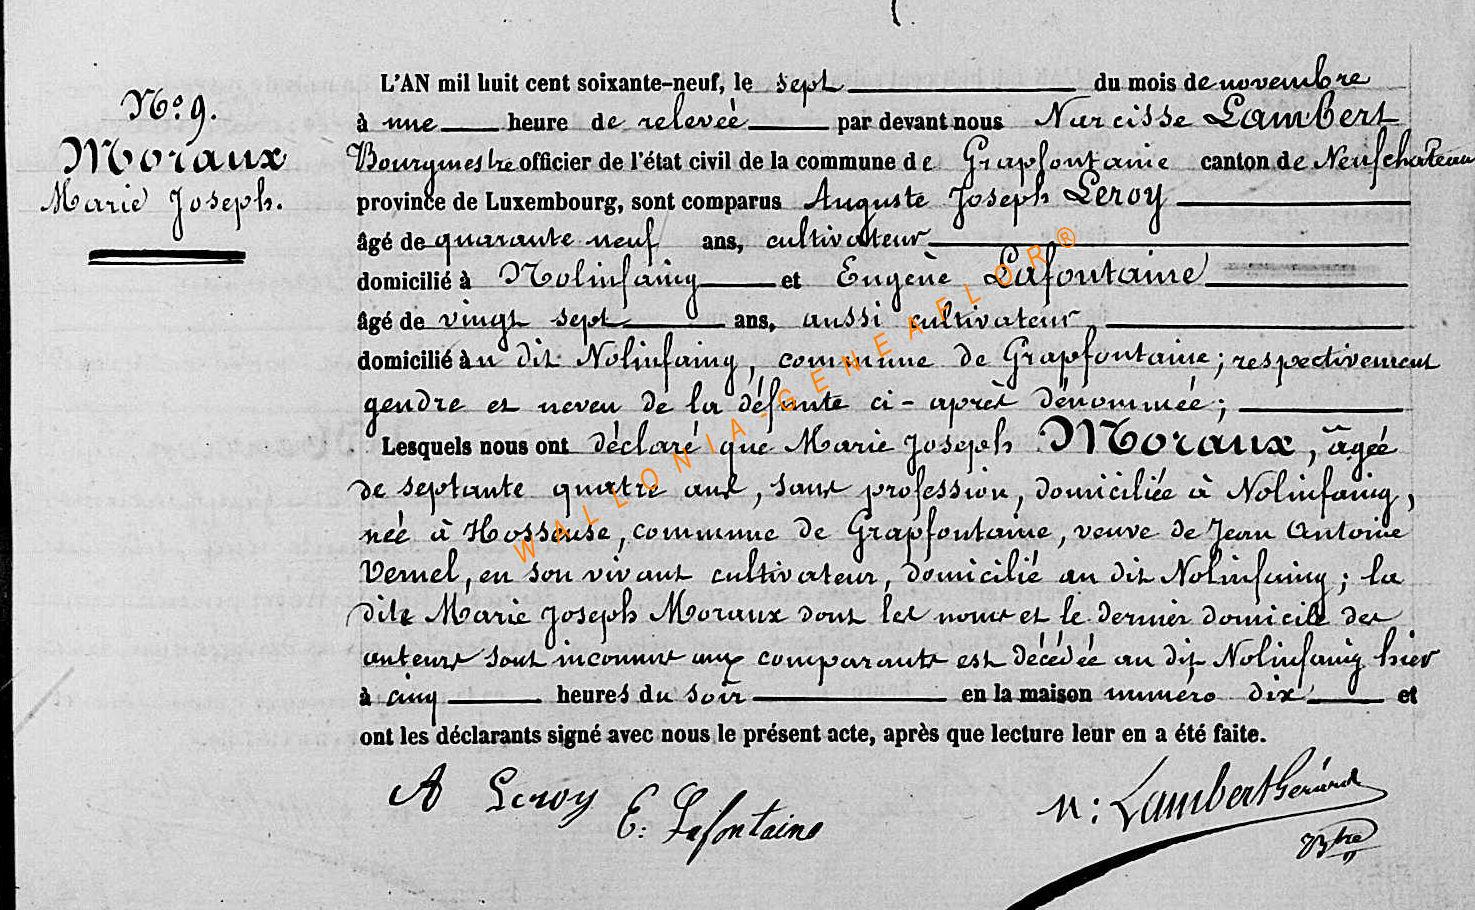 N.o 9.
Moraux
Marie Joseph.
L'AN mil huit cent soixante-neuf, le sept du mois de novembre
à une heure de relevée par devant nous Narcisse Lambert
Bourgmestre officier de l'état civil de la commune de Grapfontaine canton de Neufchateau
province de Luxembourg, sont comparus Auguste Joseph Leroy
âgé de quarante neuf ans, cultivateur
domicilié à Nolinfaing et Eugène Lafontaine
âgé de vingt sept ans, aussi cultivateur
domicilié au dit Nolinfaing, commune de Grapfontaine; respectivement
gendre et neveu de la défunte ci-après dénommée;
Lesquels nous ont déclaré que Marie Joseph Moraux, âgée
de septante quatre ans, sans profession, domiciliée à Nolinfaing,
née à Hosseuse, commune de Grapfontaine, veuve de Jean Antoine
Vernel, en son vivant cultivateur, domicilié au dit Nolinfaing; la
dite Marie Joseph Moraux dont les noms et le dernier domicile des
auteurs sont inconnus aux comparants est décédée au dit Nolinfaing hier
à cinq heures du soir en la maison numéro dix et
ont les déclarants signé avec nous le présent acte, après que lecture leur en a été faite.
A Leroy E: Lafontaine N: Lambert Gérard
Btre
WALLONIA-GENEAFLOR®